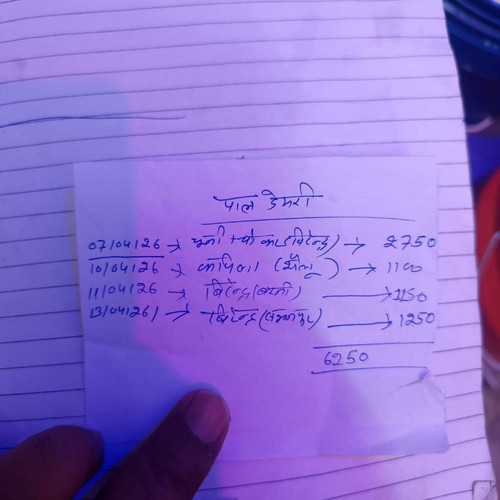 पाल डेयरी
07/04/26 → चुन्नी + पो का (बिरेन्द्र) → 2750
10/04/26 → कपिला (शैलू) → 1100
11/04/26 → बिरेन्द्र (बस्ती) → 1150
13/04/26 → बिरेन्द्र → 1250
6250